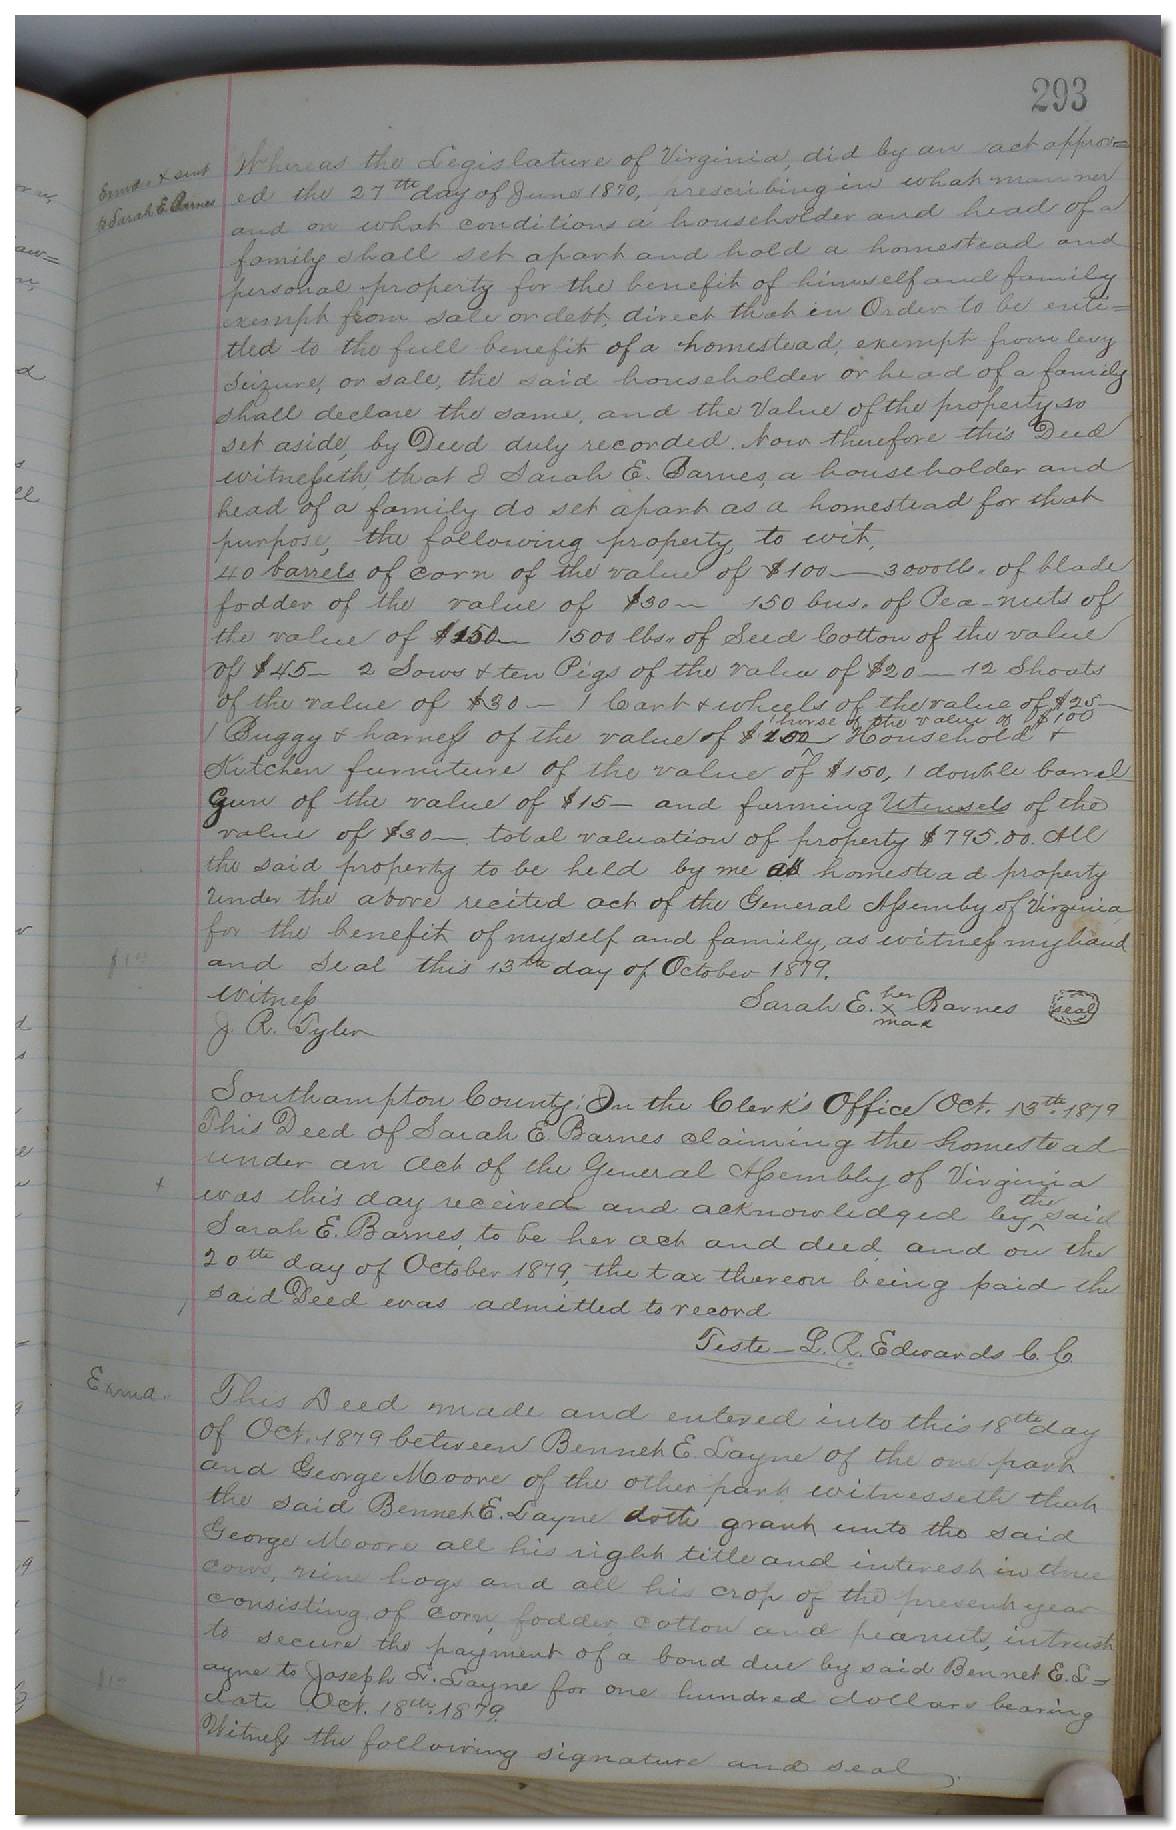 293
Exmd. & sent
to Sarah E. Barnes
Whereas the Legislature of Virginia, did by an act approv=
ed the 27th day of June 1870, prescribing in what manner
and on what conditions a householder and head of a
family shall set apart and hold a homestead and
personal property for the benefit of himself and family
exempt from sale or debt, direct that in Order to be enti=
tled to the full benefit of a homestead, exempt from levy
seizure, or sale, the said householder or head of a family
shall declare the same, and the Value of the property so
set aside, by Deed duly recorded. Now therefore this Deed
witnesseth, that I Sarah E. Barnes, a householder and
head of a family do set apart as a homestead for that
purpose, the following property, to wit,
40 barrels of corn of the value of $100— 3000lb. of blade
fodder of the value of $30— 150 bus. of Pea-nuts of
the value of $150— 1500 lbs. of Seed Cotton of the value
of $45— 2 Sows & ten Pigs of the value of $20— 12 Shoats
of the value of $30— 1 Cart & wheels of the value of $25—
1 horse of the value of $100
1 Buggy & harness of the value of $100— ^ Household &
Kitchen furniture of the value of $150, 1 double barrel
Gun of the value of $15— and farming Utensels of the
value of $30— total valuation of property $795.00. All
the said property to be held by me as homestead property
under the above recited act of the General Assemby of Virginia
for the benefit of myself and family, as witness my hand
and seal this 13th day of October 1879.
witness
Sarah E. her x mark Barnes seal
J. R. Tyler
Southampton County: In the Clerk's Office Oct. 13th 1879
This Deed of Sarah E. Barnes claiming the homestead
under an Act of the General Assembly of Virginia
was this day received and acknowledged by ^the said
Sarah E. Barnes, to be her act and deed, and on the
20th day of October 1879, the tax thereon being paid the
said Deed was admitted to record
Teste— L. R. Edwards C. C.
Exmd.
This Deed made and entered into this 18th day
of Oct. 1879 between Bennet E. Layne of the one part
and George Moore of the other part witnesseth that
the said Bennet E. Layne doth grant unto the said
George Moore all his right title and interest in three
cows, nine hogs and all his crop of the present year
consisting of corn, fodder, cotton and peanuts, in trust
to secure the payment of a bond due by said Bennet E. L=
ayne to Joseph L. Layne for one hundred dollars bearing
date Oct. 18th 1879.
Witness the following signature and seal